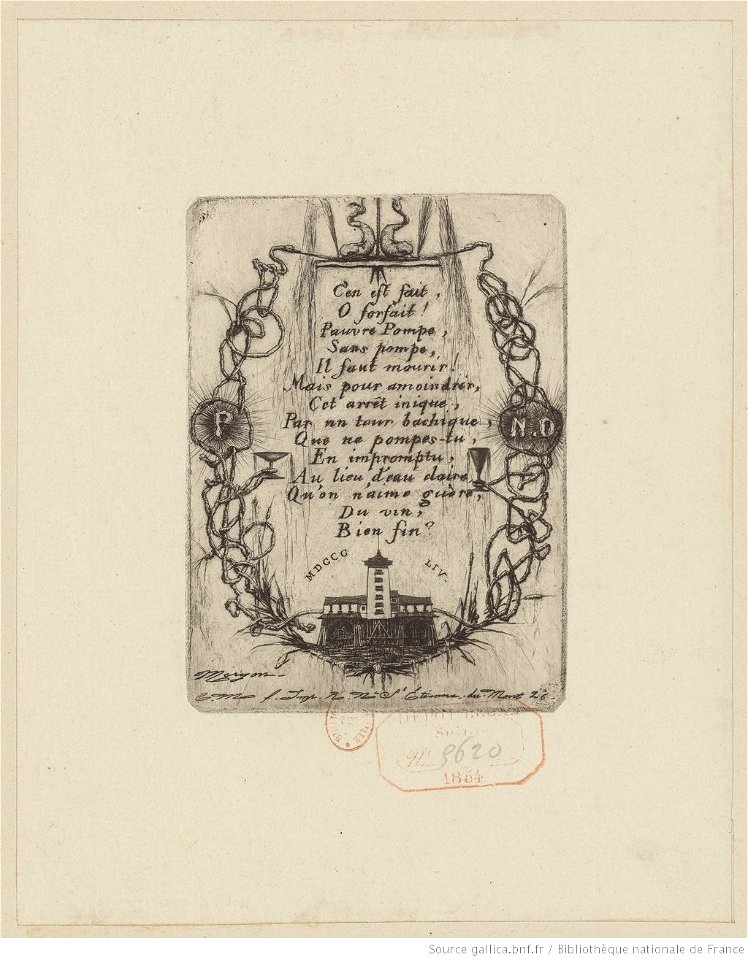 C'en est fait,
O forfait!
Pauvre Pompe,
Sans pompe,
Il faut mourir!
Mais pour amoindrir,
Cet arrêt inique,
Par un tour bachique,
Que ne pompes-tu,
En impromptu,
Au lieu d'eau claire,
Qu'on n'aime guère,
Du vin,
Bien fin?
P
N.D
MDCCC LIV.
Meryon
C.M f. Imp. R. Nve St Etienne du Mont 26
DEPOT LEGAL
Seine
No 9620
1854
Source gallica.bnf.fr / Bibliothèque nationale de France